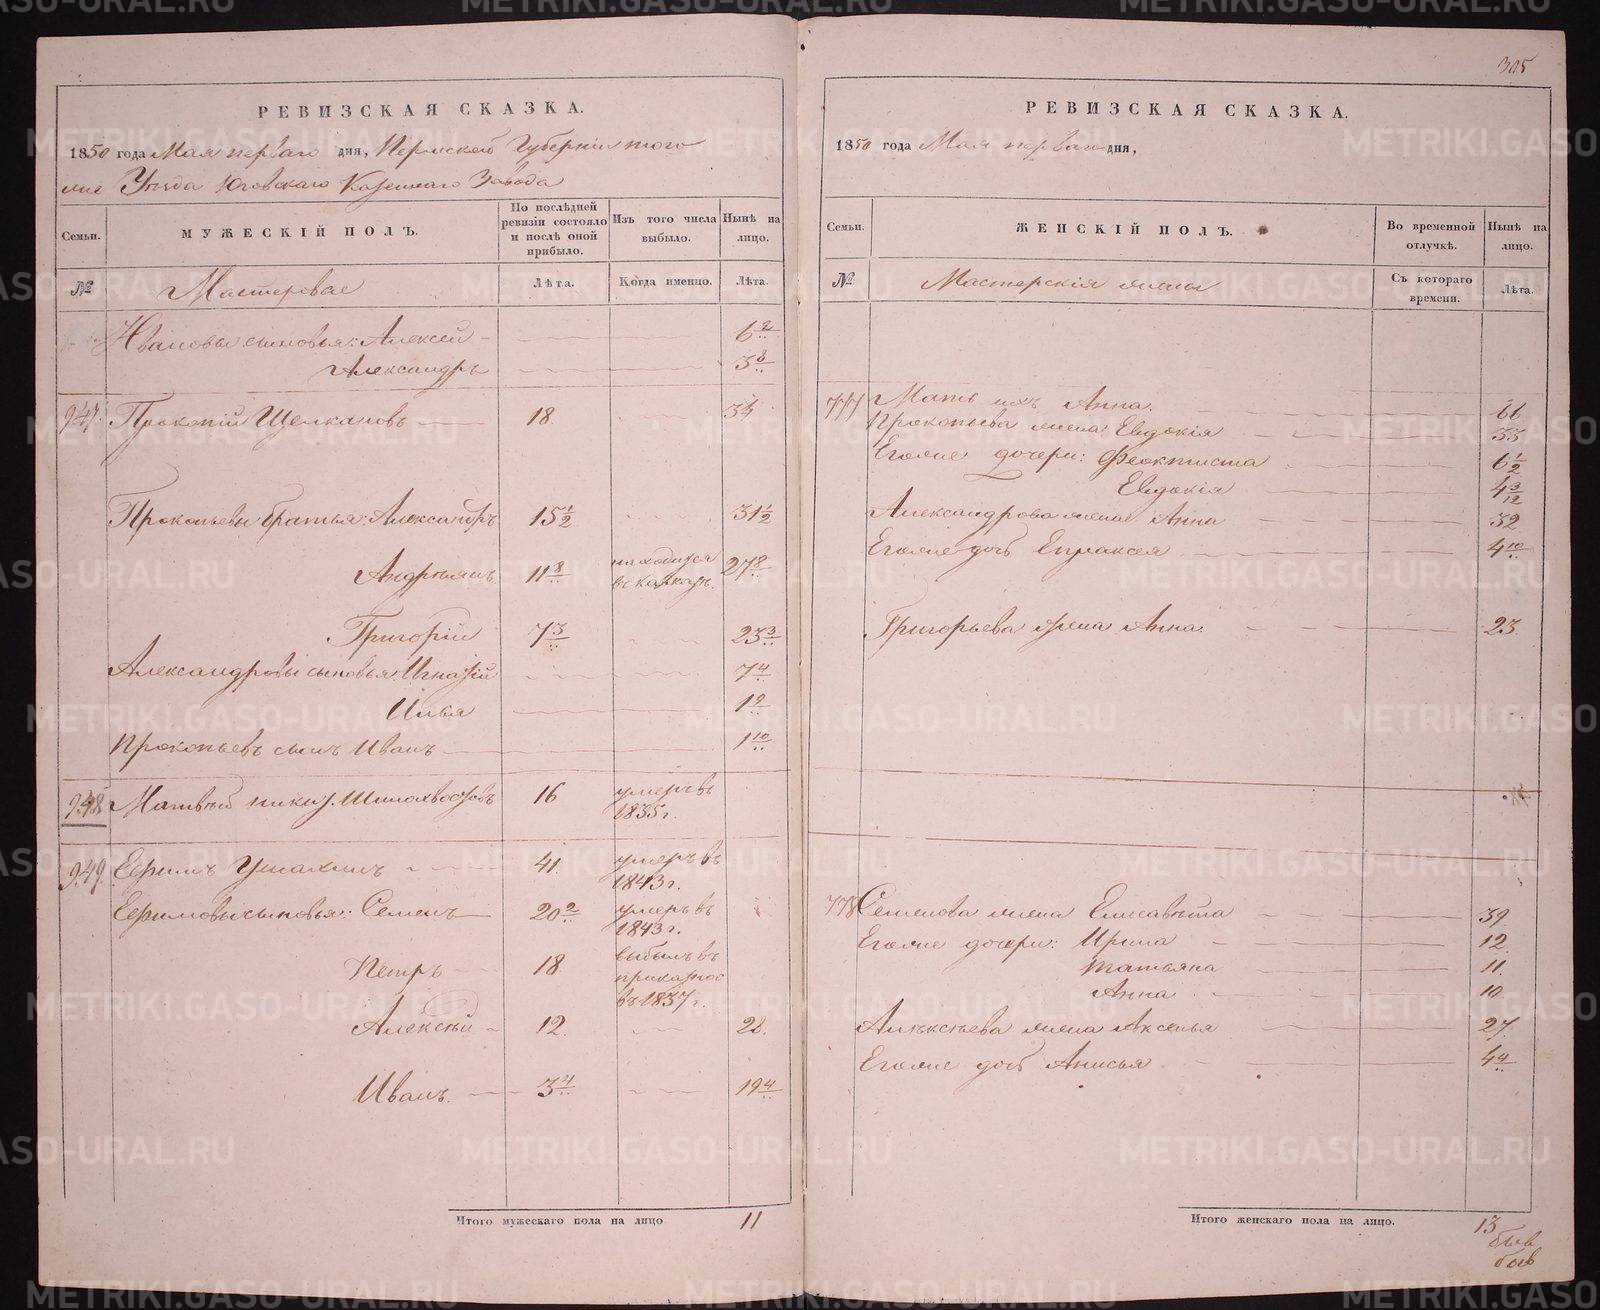 305
РЕВИЗСКАЯ СКАЗКА.
1850 года Мая перваго дня, Пермской Губерніи того
же Уѣзда Юговскаго Казеннаго Завода
Семьи. МУЖЕСКІЙ ПОЛЪ. По послѣдней ревизіи состояло и послѣ оной прибыло. Изъ того числа выбыло. Нынѣ на лицо.
№ Мастеровые Лѣта. Когда именно. Лѣта.
Ивановы сыновья: Алексей 6 2/..
Александръ 3 8/..
947. Прокопій Щелкановъ 18. 34
Прокопьевы братья: Александръ 15 1/2 31 1/2
Андреянъ 11 8/.. находится въ Кавказѣ 27 8/..
Григорій 7 3/.. 23 3/..
Александровы сыновья: Игнатій 7 4/..
Илья 1 2/..
Прокопьевъ сынъ Иванъ 1 10/..
948. Матвѣй Никит. Шилохвостовъ 16 умеръ въ 1835 г.
949. Ефимъ Ушахинъ 41. умеръ въ 1843 г.
Ефимовы сыновья: Семенъ 20 2/.. умеръ въ 1843 г.
Петръ 18 выбылъ въ въ 1837 г.
Алексѣй 12. 28.
Иванъ. 3 4/.. 19 4/..
Итого мужескаго пола на лицо 11
РЕВИЗСКАЯ СКАЗКА.
1850 года Мая перваго дня,
Семьи. ЖЕНСКІЙ ПОЛЪ. Во временной отлучкѣ. Нынѣ на лицо.
№ Мастерскія жены Съ котораго времени. Лѣта.
777 Мать ихъ Анна. 66
Прокопьева жена Евдокія 33
Его же дочери: Феоктиста 6 1/2
Евдокія 4 3/12
Александрова жена Анна 32
Его же дочь Епраксея 4 10/..
Григорьева жена Анна 23.
778 Семенова жена Елисавѣта 39
Его же дочери: Ирина 12
Татьяна 11.
Анна 10
Алексѣева жена Аксенья 27.
Его же дочь Анисья 4 4/..
Итого женскаго пола на лицо. 13
METRIKI.GASO-URAL.RU